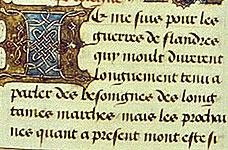 Ie me suis pour les
guerres de flandres
qui moult durerent
longuement tenu a
parler des besoignes des loing
taines marches mais les prochai
nes quant a present mont este si